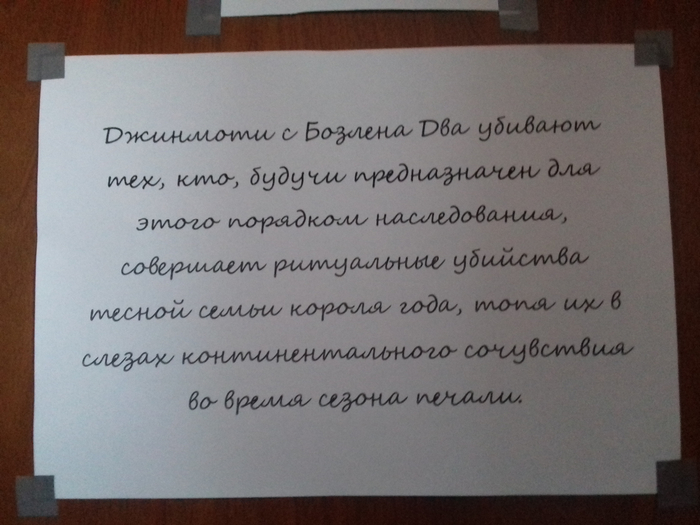 Джинмоти с Бозлена Два убивают
тех, кто, будучи предназначен для
этого порядком наследования,
совершает ритуальные убийства
тесной семьи короля года, топя их в
слезах континентального сочувствия
во время сезона печали.